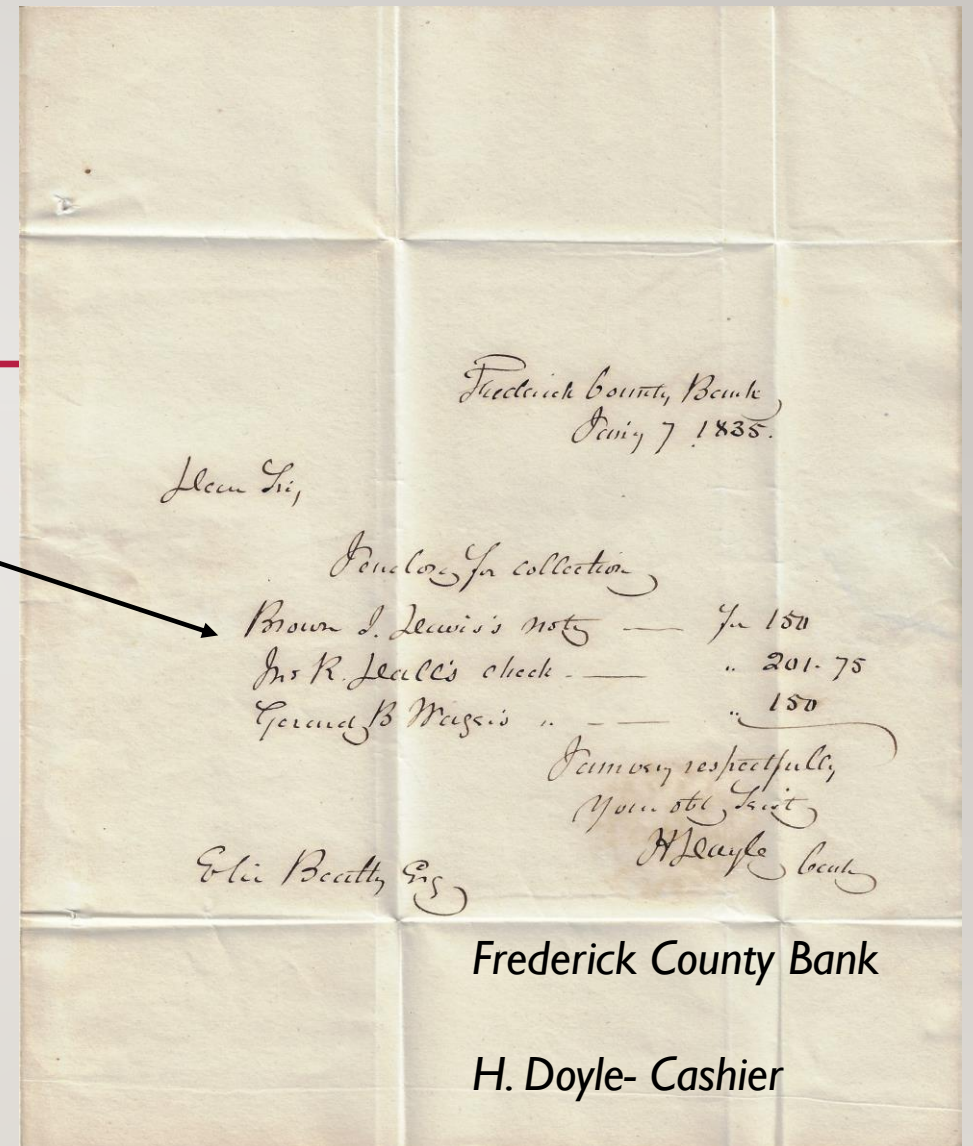 Frederick County Bank
Jany 7 1835.
Dear Sir,
I enclose for collection
Brown J. Lewis's note — for 150
Jno R. Dall's check — " 201.75
Gerard B " — " 150
I am very respectfully
Your obt Servt
H Doyle Cash
Elie Beatty Esq
Frederick County Bank
H. Doyle- Cashier